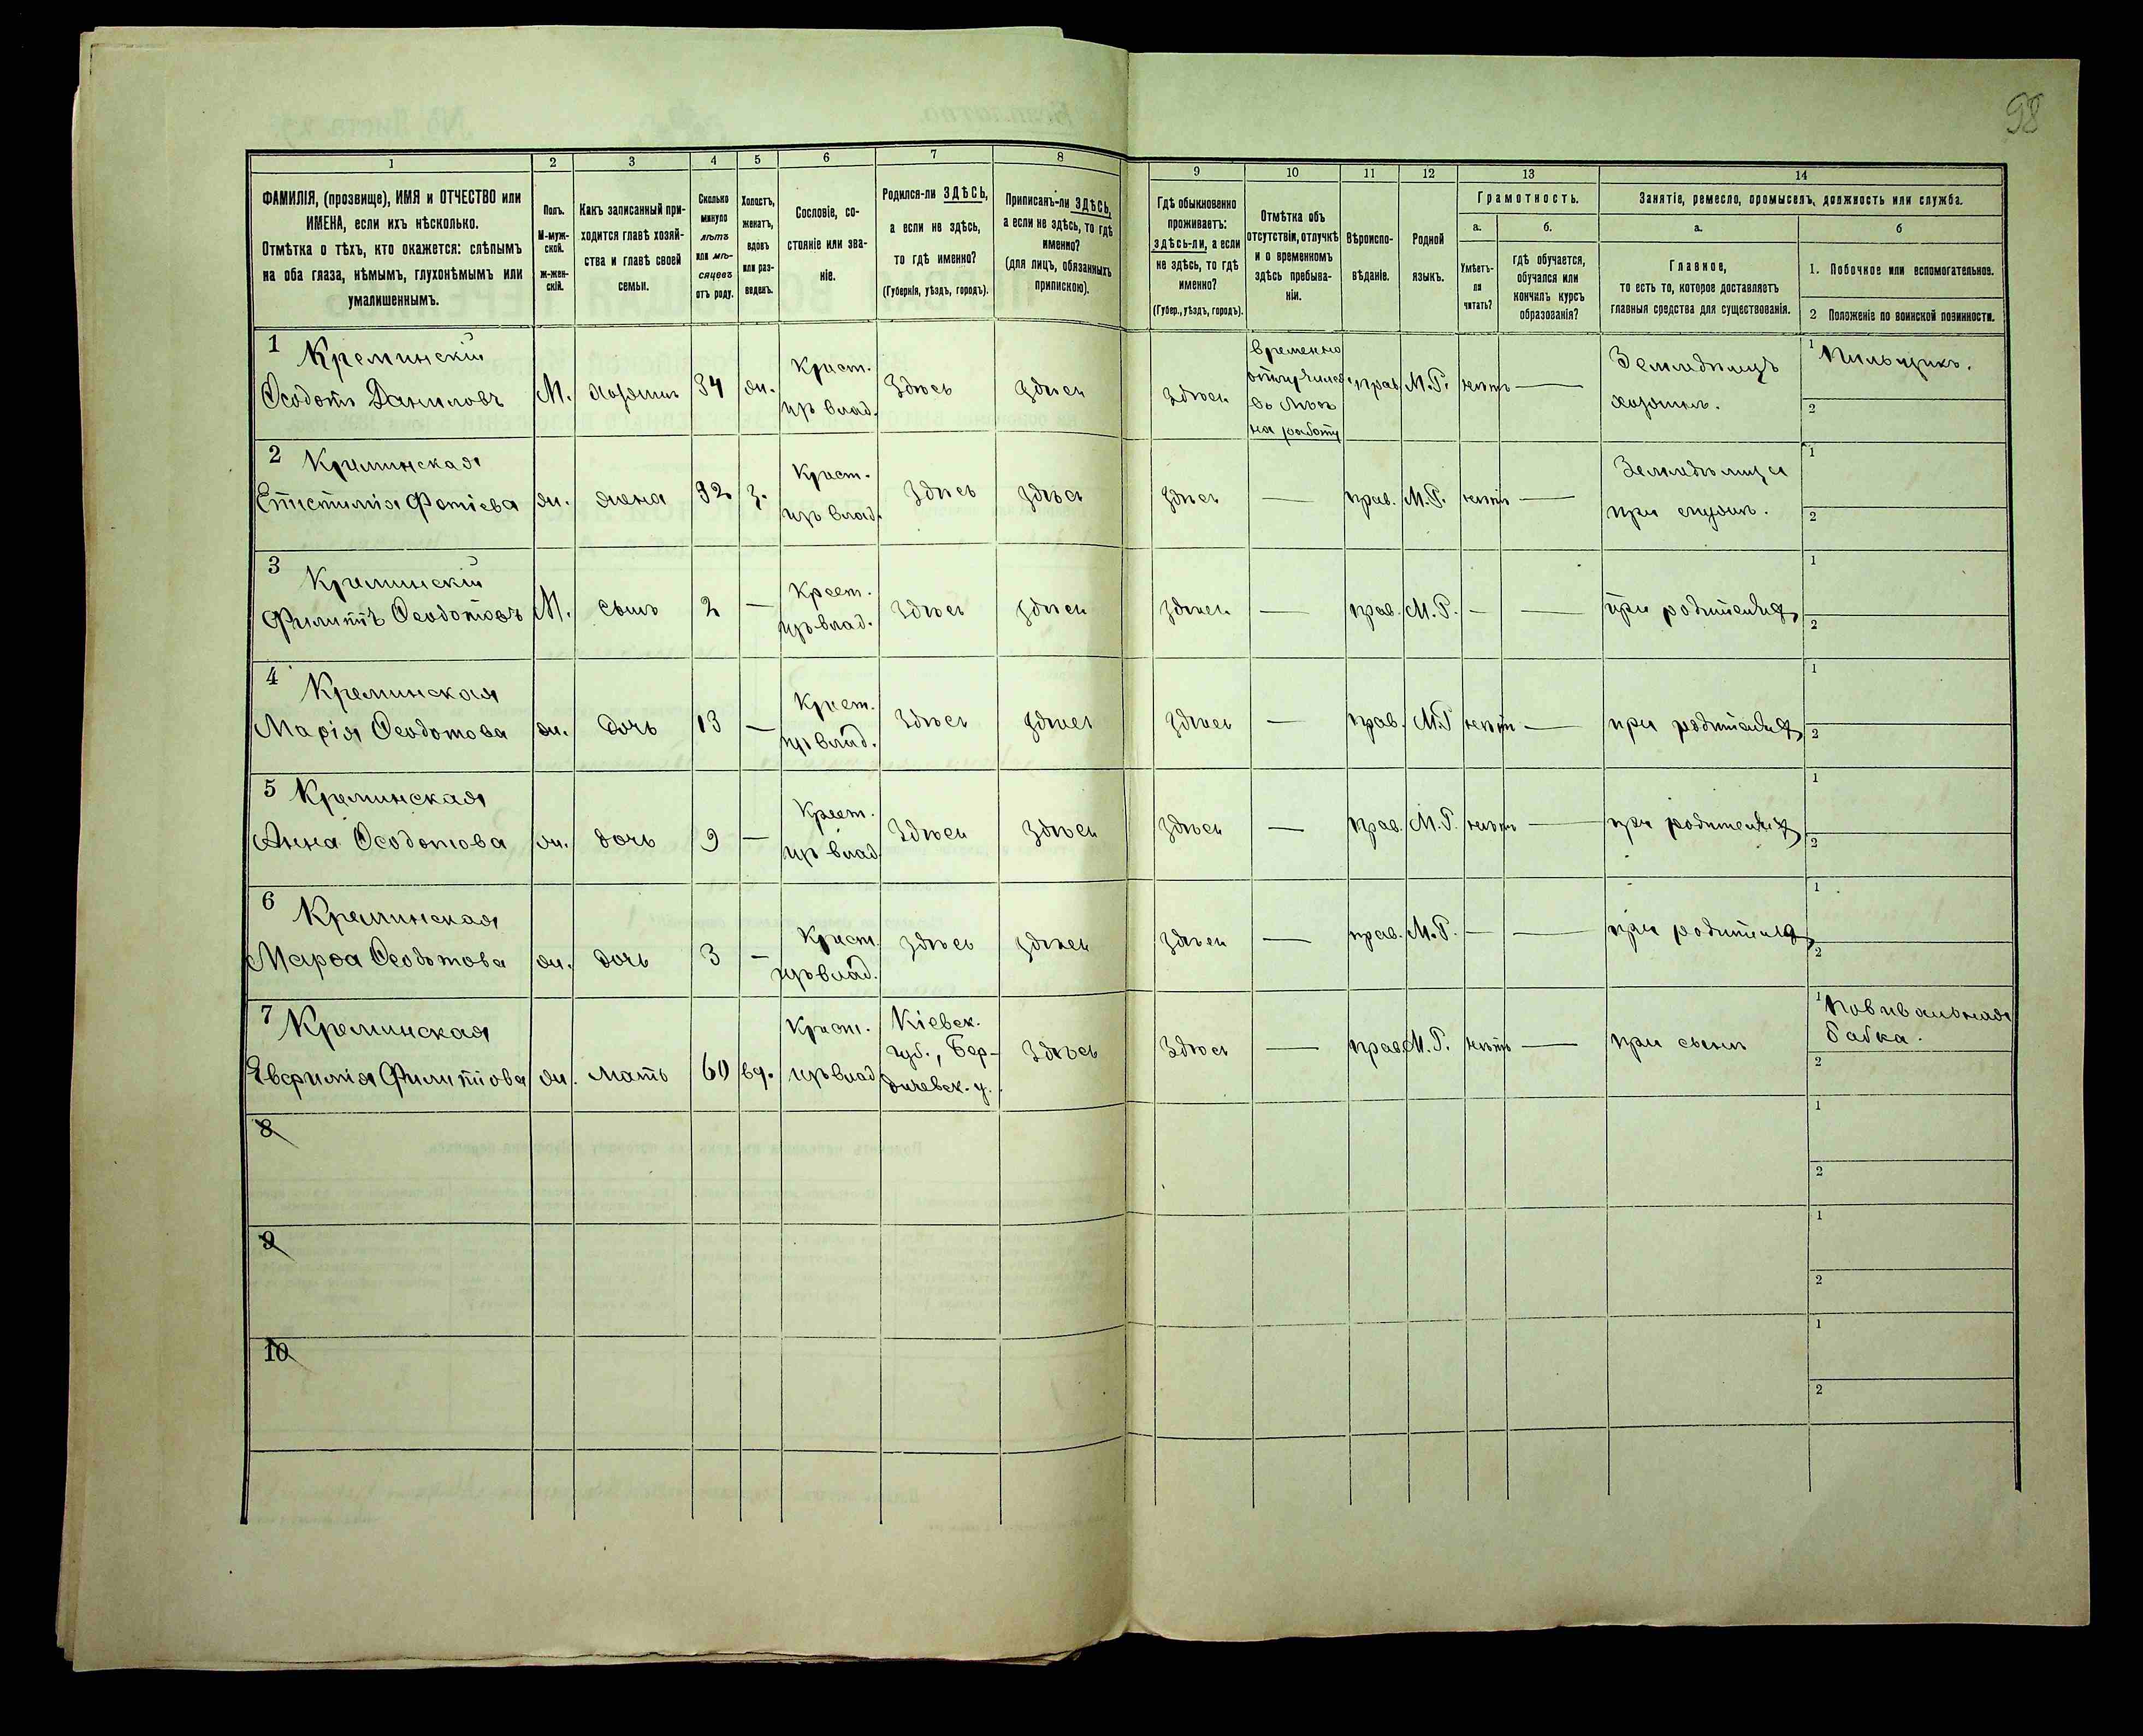 98
1
2
3
4
5
6
7
8
9
10
11
12
13
14
ФАМИЛІЯ, (прозвище), ИМЯ и ОТЧЕСТВО или
ИМЕНА, если ихъ нѣсколько.
Отмѣтка о тѣхъ, кто окажется: слѣпымъ
на оба глаза, нѣмымъ, глухонѣмымъ или
умалишеннымъ.
Полъ.
М-муж-
ской.
ж-жен-
скій.
Какъ записанный при-
ходится главѣ хозяй-
ства и главѣ своей
семьи.
Сколько
минуло
лѣтъ
или мѣ-
сяцевъ
отъ роду.
Холостъ,
женатъ,
вдовъ
или раз-
веденъ.
Сословіе, со-
стояніе или зва-
ніе.
Родился-ли ЗДѢСЬ,
а если не здѣсь,
то гдѣ именно?
(Губернія, уѣздъ, городъ).
Приписанъ-ли ЗДѢСЬ,
а если не здѣсь, то гдѣ
именно?
(для лицъ, обязанныхъ
припискою).
Гдѣ обыкновенно
проживаетъ:
здѣсь-ли, а если
не здѣсь, то гдѣ
именно?
(Губер., уѣздъ, городъ).
Отмѣтка объ
отсутствіи, отлучкѣ
и о временномъ
здѣсь пребыва-
ніи.
Вѣроиспо-
вѣданіе.
Родной
языкъ.
Грамотность.
а.
б.
Умѣетъ-
ли
читать?
гдѣ обучается,
обучался или
кончилъ курсъ
образованія?
Занятіе, ремесло, промыселъ, должность или служба.
а.
б
Главное,
то есть то, которое доставляетъ
главныя средства для существованія.
1. Побочное или вспомогательное.
2 Положеніе по воинской повинности.
1
Креминскій
Ѳеодотъ Даниловъ
М.
хозяинъ
34
ж.
Крест.
из влад.
Здѣсь
здѣсь
здѣсь
временно
отлучился
въ лѣсъ
на работу
прав.
М.Р.
нѣтъ
—
Земледѣлецъ
хозяинъ.
1
Пильщикъ.
2
2
Креминская
Епистимія Фотіева
ж.
жена
32
з.
Крест.
из влад.
Здѣсь
здѣсь
здѣсь
—
прав.
М.Р.
нѣтъ
—
Земледѣлица
при мужѣ.
1
2
3
Креминскій
Филиппъ Ѳеодотовъ
М.
сынъ
2
—
Крест.
из влад.
здѣсь
здѣсь
здѣсь
—
прав.
М.Р.
—
—
при родителяхъ
1
2
4
Креминская
Марія Ѳеодотова
ж.
дочь
13
—
Крест.
из влад.
здѣсь
здѣсь
здѣсь
—
прав.
М.Р
нѣтъ
—
при родителяхъ
1
2
5
Креминская
Анна Ѳеодотова
ж.
дочь
9
—
Крест.
из влад
здѣсь
здѣсь
здѣсь
—
прав.
М.Р.
нѣтъ
—
при родителяхъ
1
2
6
Креминская
Марѳа Ѳеодотова
ж.
дочь
3
—
Крест.
из влад.
здѣсь
здѣсь
здѣсь
—
прав.
М.Р.
—
—
при родителяхъ
1
2
7
Креминская
Евфимія Филиппова
ж.
мать
60
вд.
Крест.
из влад
Кіевск.
губ., Бер-
дичевск. у.
Здѣсь
Здѣсь
—
прав.
М.Р.
нѣтъ
—
при сынѣ
1
Повивальная
бабка.
2
8
1
2
9
1
2
10
1
2